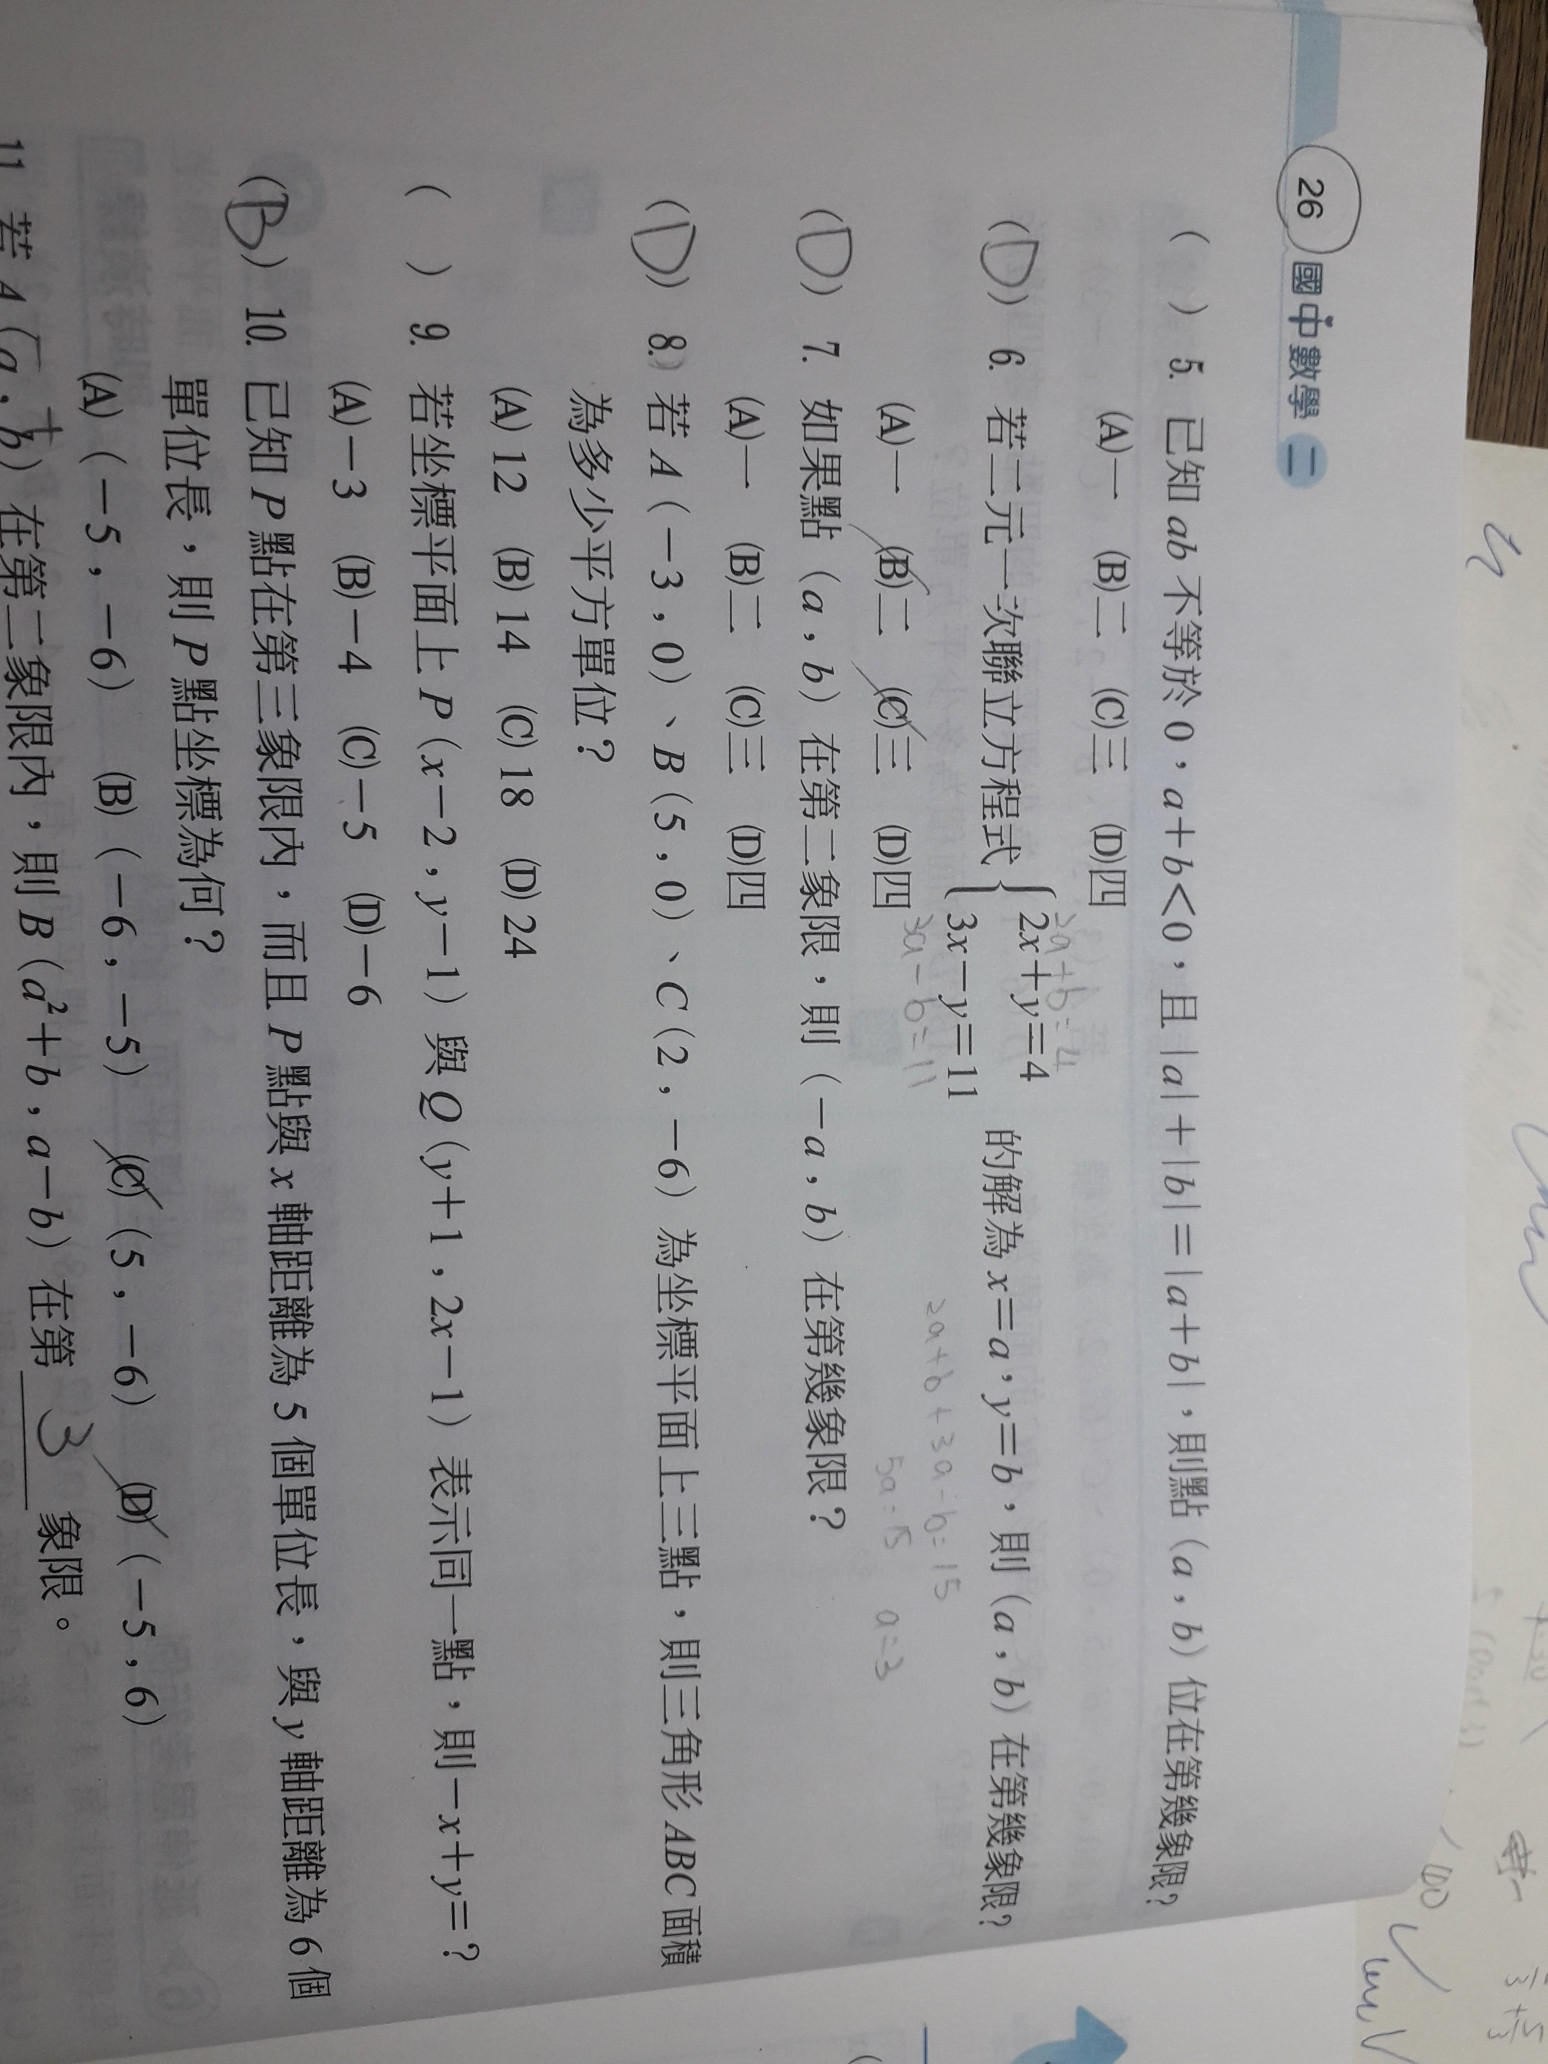 26 國中數學 二
( ) 5. 已知 ab 不等於 0，a＋b＜0，且 |a|＋|b|＝|a＋b|，則點（a，b）位在第幾象限？
(A)一 (B)二 (C)三 (D)四
2a+b=4
(D) 6. 若二元一次聯立方程式 { 2x＋y＝4 3x－y＝11 的解為 x＝a，y＝b，則（a，b）在第幾象限？
3a-b=11
2a+b+3a-b=15
(A)一 (B)二 (C)三 (D)四
5a=15 a=3
(D) 7. 如果點（a，b）在第二象限，則（－a，b）在第幾象限？
(A)一 (B)二 (C)三 (D)四
(D) 8. 若 A（－3，0）、B（5，0）、C（2，－6）為坐標平面上三點，則三角形 ABC 面積
為多少平方單位？
(A) 12 (B) 14 (C) 18 (D) 24
( ) 9. 若坐標平面上 P（x－2，y－1）與 Q（y＋1，2x－1）表示同一點，則－x＋y＝？
(A)－3 (B)－4 (C)－5 (D)－6
(B) 10. 已知 P 點在第三象限內，而且 P 點與 x 軸距離為 5 個單位長，與 y 軸距離為 6 個
單位長，則 P 點坐標為何？
(A)（－5，－6） (B)（－6，－5） (C)（5，－6） (D)（－5，6）
－ ＋
11. 若 A（a，b）在第二象限內，則 B（a²＋b，a－b）在第 3 象限。
100